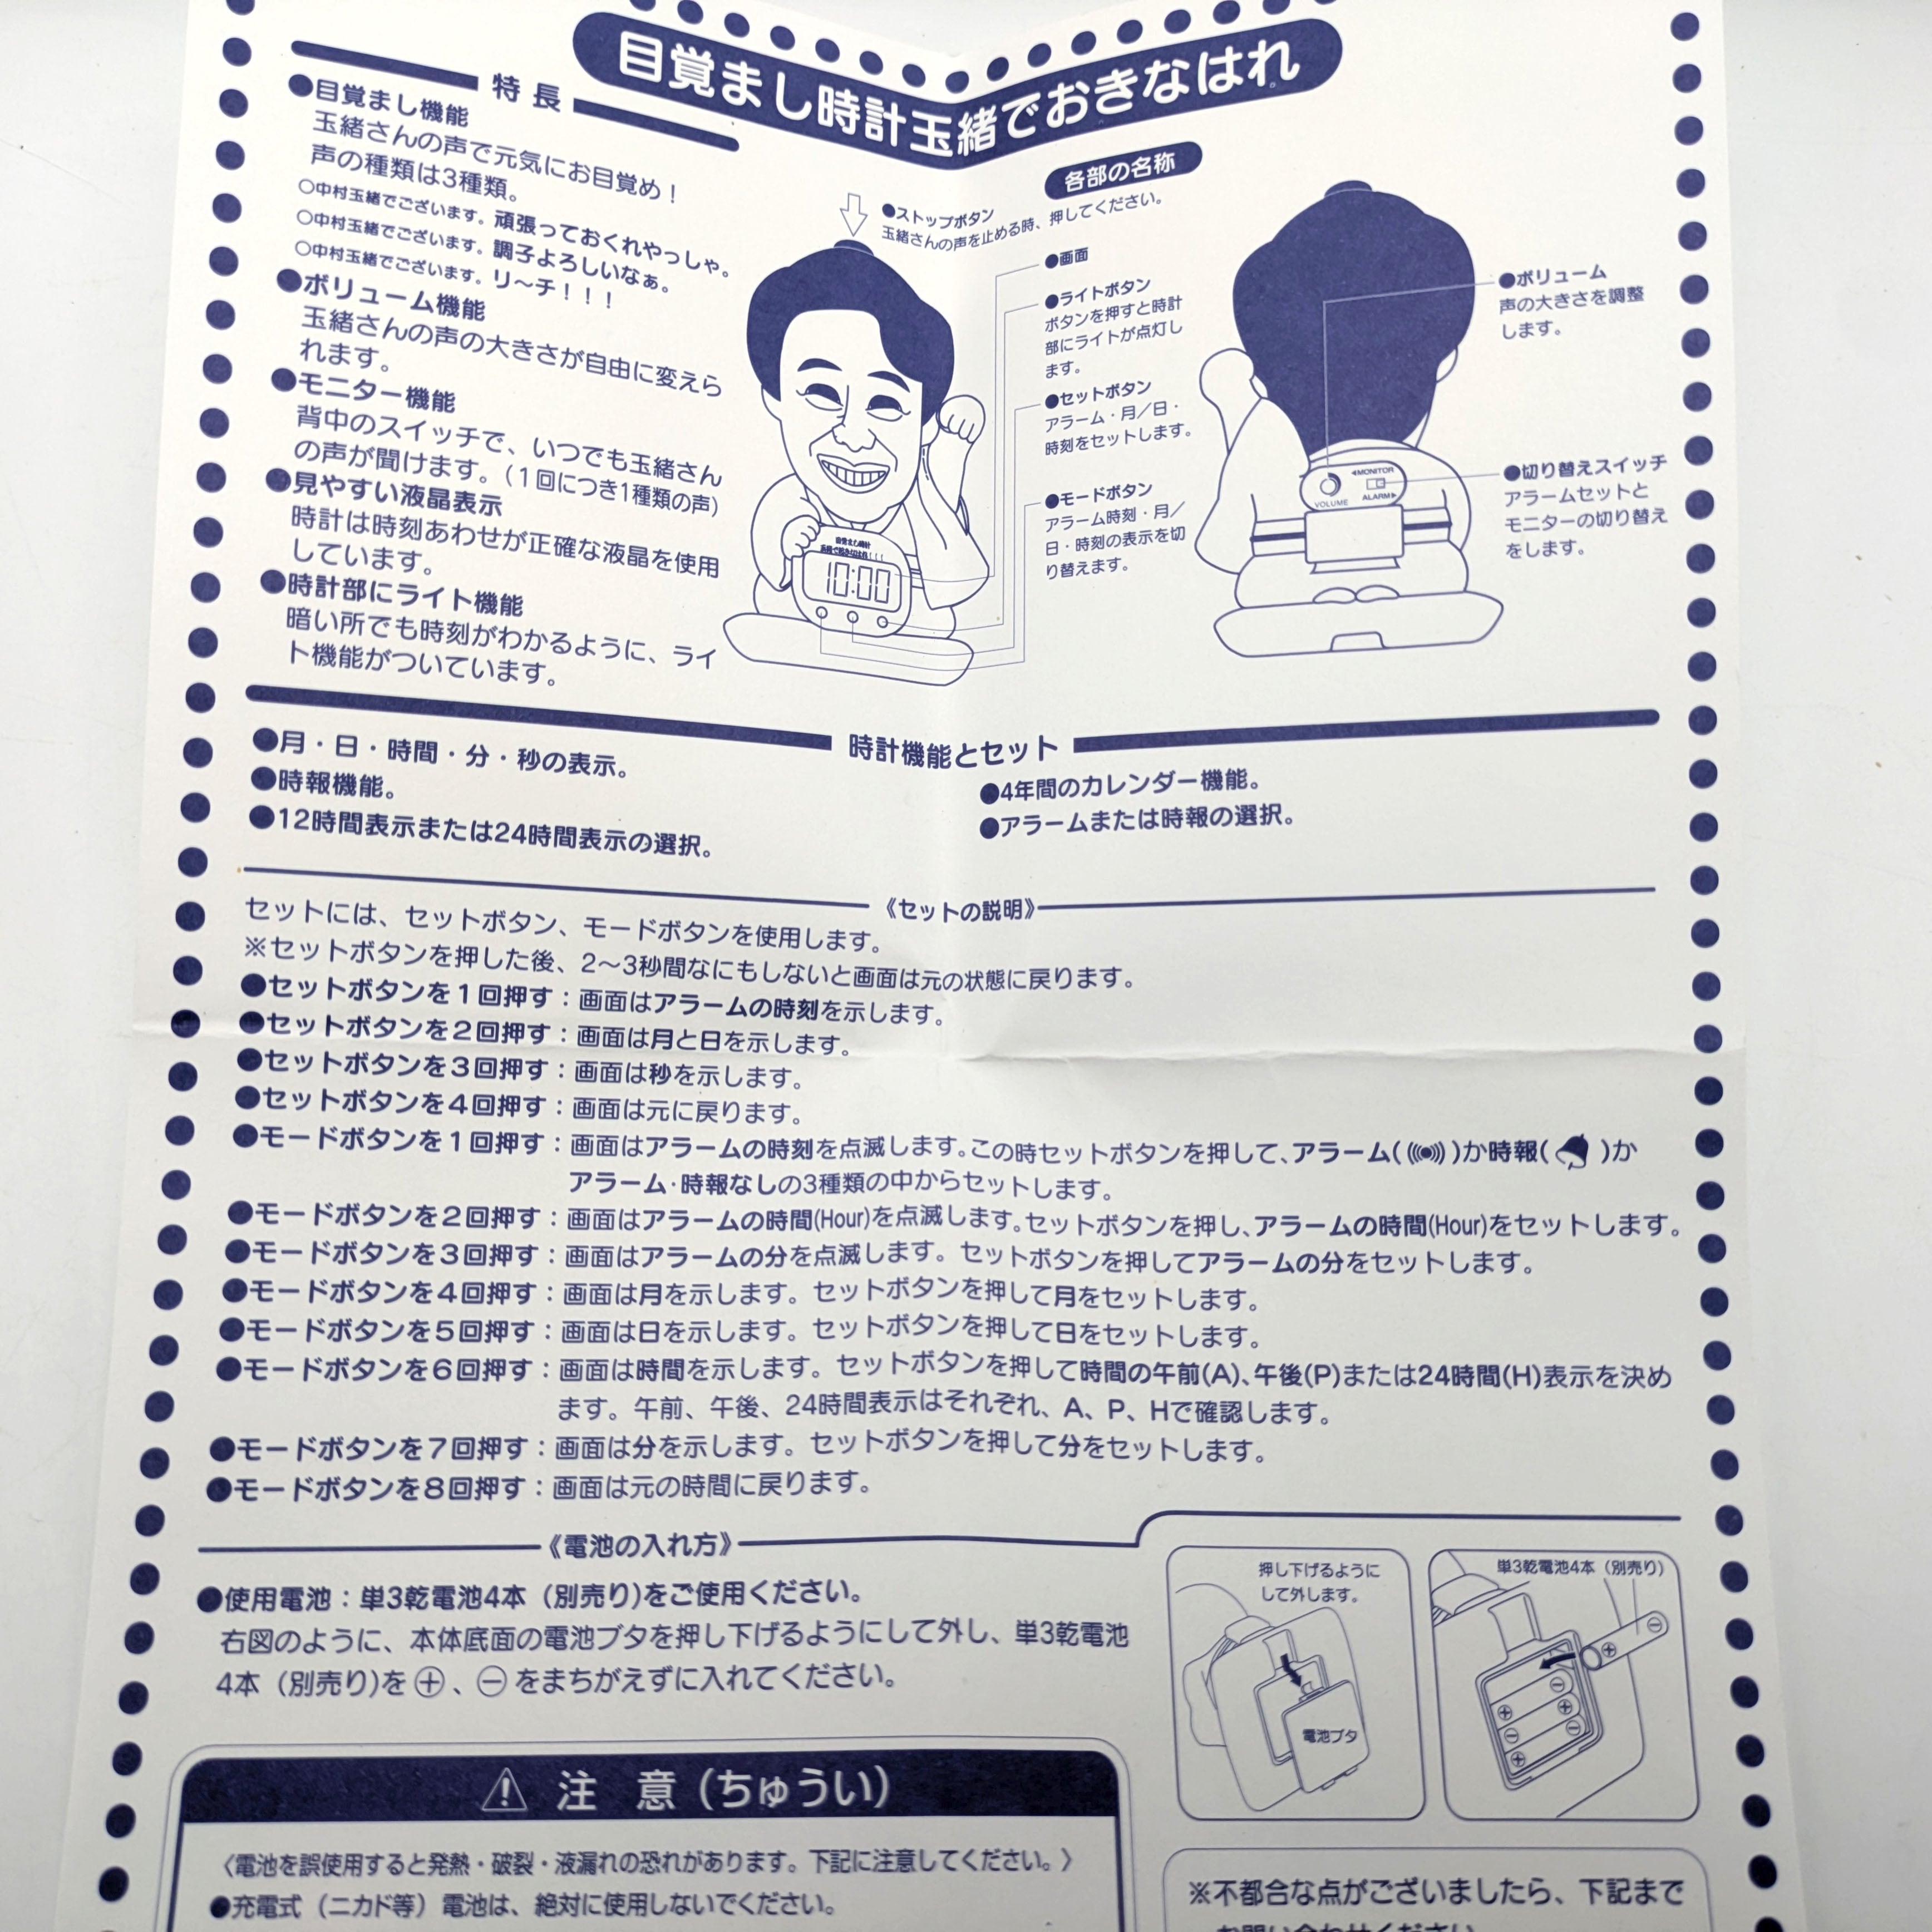 目覚まし時計玉緒でおきなはれ
特長
●目覚まし機能
玉緒さんの声で元気にお目覚め！
声の種類は3種類。
○中村玉緒でございます。頑張っておくれやっしゃ。
○中村玉緒でございます。調子よろしいなぁ。
○中村玉緒でございます。リ～チ！！！
●ボリューム機能
玉緒さんの声の大きさが自由に変えら
れます。
●モニター機能
背中のスイッチで、いつでも玉緒さん
の声が聞けます。(１回につき1種類の声)
●見やすい液晶表示
時計は時刻あわせが正確な液晶を使用
しています。
●時計部にライト機能
暗い所でも時刻がわかるように、ライ
ト機能がついています。
各部の名称
●ストップボタン
玉緒さんの声を止める時、押してください。
●画面
●ライトボタン
ボタンを押すと時計
部にライトが点灯し
ます。
●セットボタン
アラーム・月／日・
時刻をセットします。
●モードボタン
アラーム時刻・月／
日・時刻の表示を切
り替えます。
目覚まし時計
10:00
●ボリューム
声の大きさを調整
します。
●切り替えスイッチ
アラームセットと
モニターの切り替え
をします。
◀MONITOR
VOLUME
ALARM▶
時計機能とセット
●月・日・時間・分・秒の表示。
●時報機能。
●12時間表示または24時間表示の選択。
●4年間のカレンダー機能。
●アラームまたは時報の選択。
《セットの説明》
セットには、セットボタン、モードボタンを使用します。
※セットボタンを押した後、2～3秒間なにもしないと画面は元の状態に戻ります。
●セットボタンを１回押す：画面はアラームの時刻を示します。
●セットボタンを２回押す：画面は月と日を示します。
●セットボタンを３回押す：画面は秒を示します。
●セットボタンを４回押す：画面は元に戻ります。
●モードボタンを１回押す：画面はアラームの時刻を点滅します。この時セットボタンを押して、アラーム( )か時報( )か
アラーム・時報なしの3種類の中からセットします。
●モードボタンを２回押す：画面はアラームの時間(Hour)を点滅します。セットボタンを押し、アラームの時間(Hour)をセットします。
●モードボタンを３回押す：画面はアラームの分を点滅します。セットボタンを押してアラームの分をセットします。
●モードボタンを４回押す：画面は月を示します。セットボタンを押して月をセットします。
●モードボタンを５回押す：画面は日を示します。セットボタンを押して日をセットします。
●モードボタンを６回押す：画面は時間を示します。セットボタンを押して時間の午前(A)、午後(P)または24時間(H)表示を決め
ます。午前、午後、24時間表示はそれぞれ、A、P、Hで確認します。
●モードボタンを７回押す：画面は分を示します。セットボタンを押して分をセットします。
●モードボタンを８回押す：画面は元の時間に戻ります。
《電池の入れ方》
●使用電池：単3乾電池4本（別売り)をご使用ください。
右図のように、本体底面の電池ブタを押し下げるようにして外し、単3乾電池
4本（別売り)を⊕、⊖をまちがえずに入れてください。
押し下げるように
して外します。
電池ブタ
単3乾電池4本（別売り）
⚠ 注 意(ちゅうい)
〈電池を誤使用すると発熱・破裂・液漏れの恐れがあります。下記に注意してください。〉
●充電式（ニカド等）電池は、絶対に使用しないでください。
※不都合な点がございましたら、下記まで